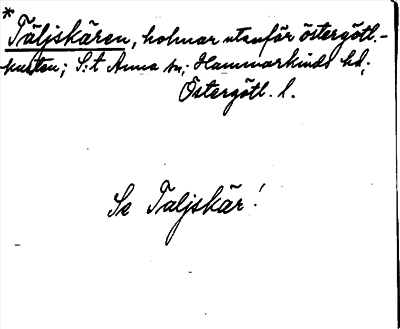 *Täljskären, holmar utanför östergötl.-
kusten; S:t Anna sn; Hammarkinds hd;
Östergötl. l.
Se Taljskär!